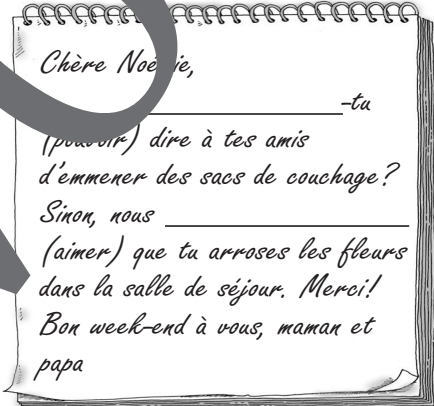 Chère Noémie,
____-tu
(pouvoir) dire à tes amis
d'emmener des sacs de couchage?
Sinon, nous ____
(aimer) que tu arroses les fleurs
dans la salle de séjour. Merci!
Bon week-end à vous, maman et
papa